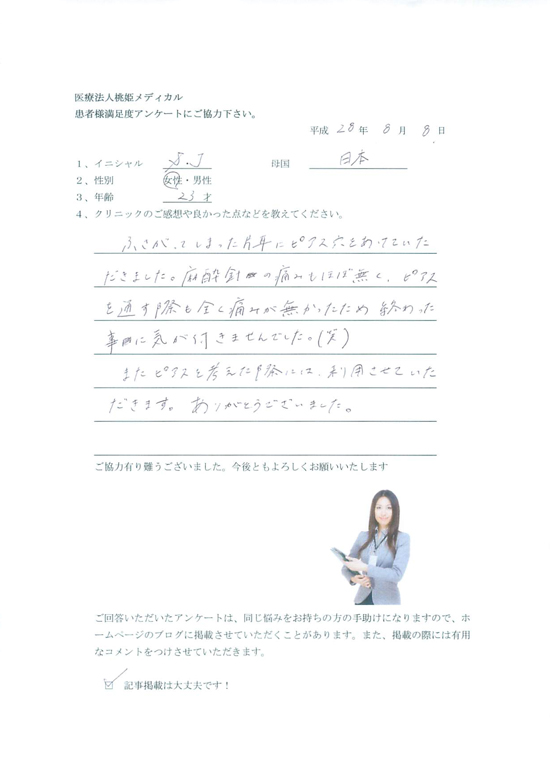 医療法人桃姫メディカル
患者様満足度アンケートにご協力下さい。
平成 28 年 8 月 8 日
1、イニシャル S.J 母国 日本
2、性別 女性・男性
3、年齢 23 才
4、クリニックのご感想や良かった点などを教えてください。
ふさがってしまった片耳にピアス穴をあけていた
だきました。麻酔針の痛みもほぼ無く、ピアス
を通す際も全く痛みが無かったため 終わった
事に気が付きませんでした。(笑)
またピアスを考えた際には、利用させていた
だきます。ありがとうございました。
ご協力有り難うございました。今後ともよろしくお願いいたします
ご回答いただいたアンケートは、同じ悩みをお持ちの方の手助けになりますので、ホ
ームページのブログに掲載させていただくことがあります。また、掲載の際には有用
なコメントをつけさせていただきます。
☑ 記事掲載は大丈夫です！